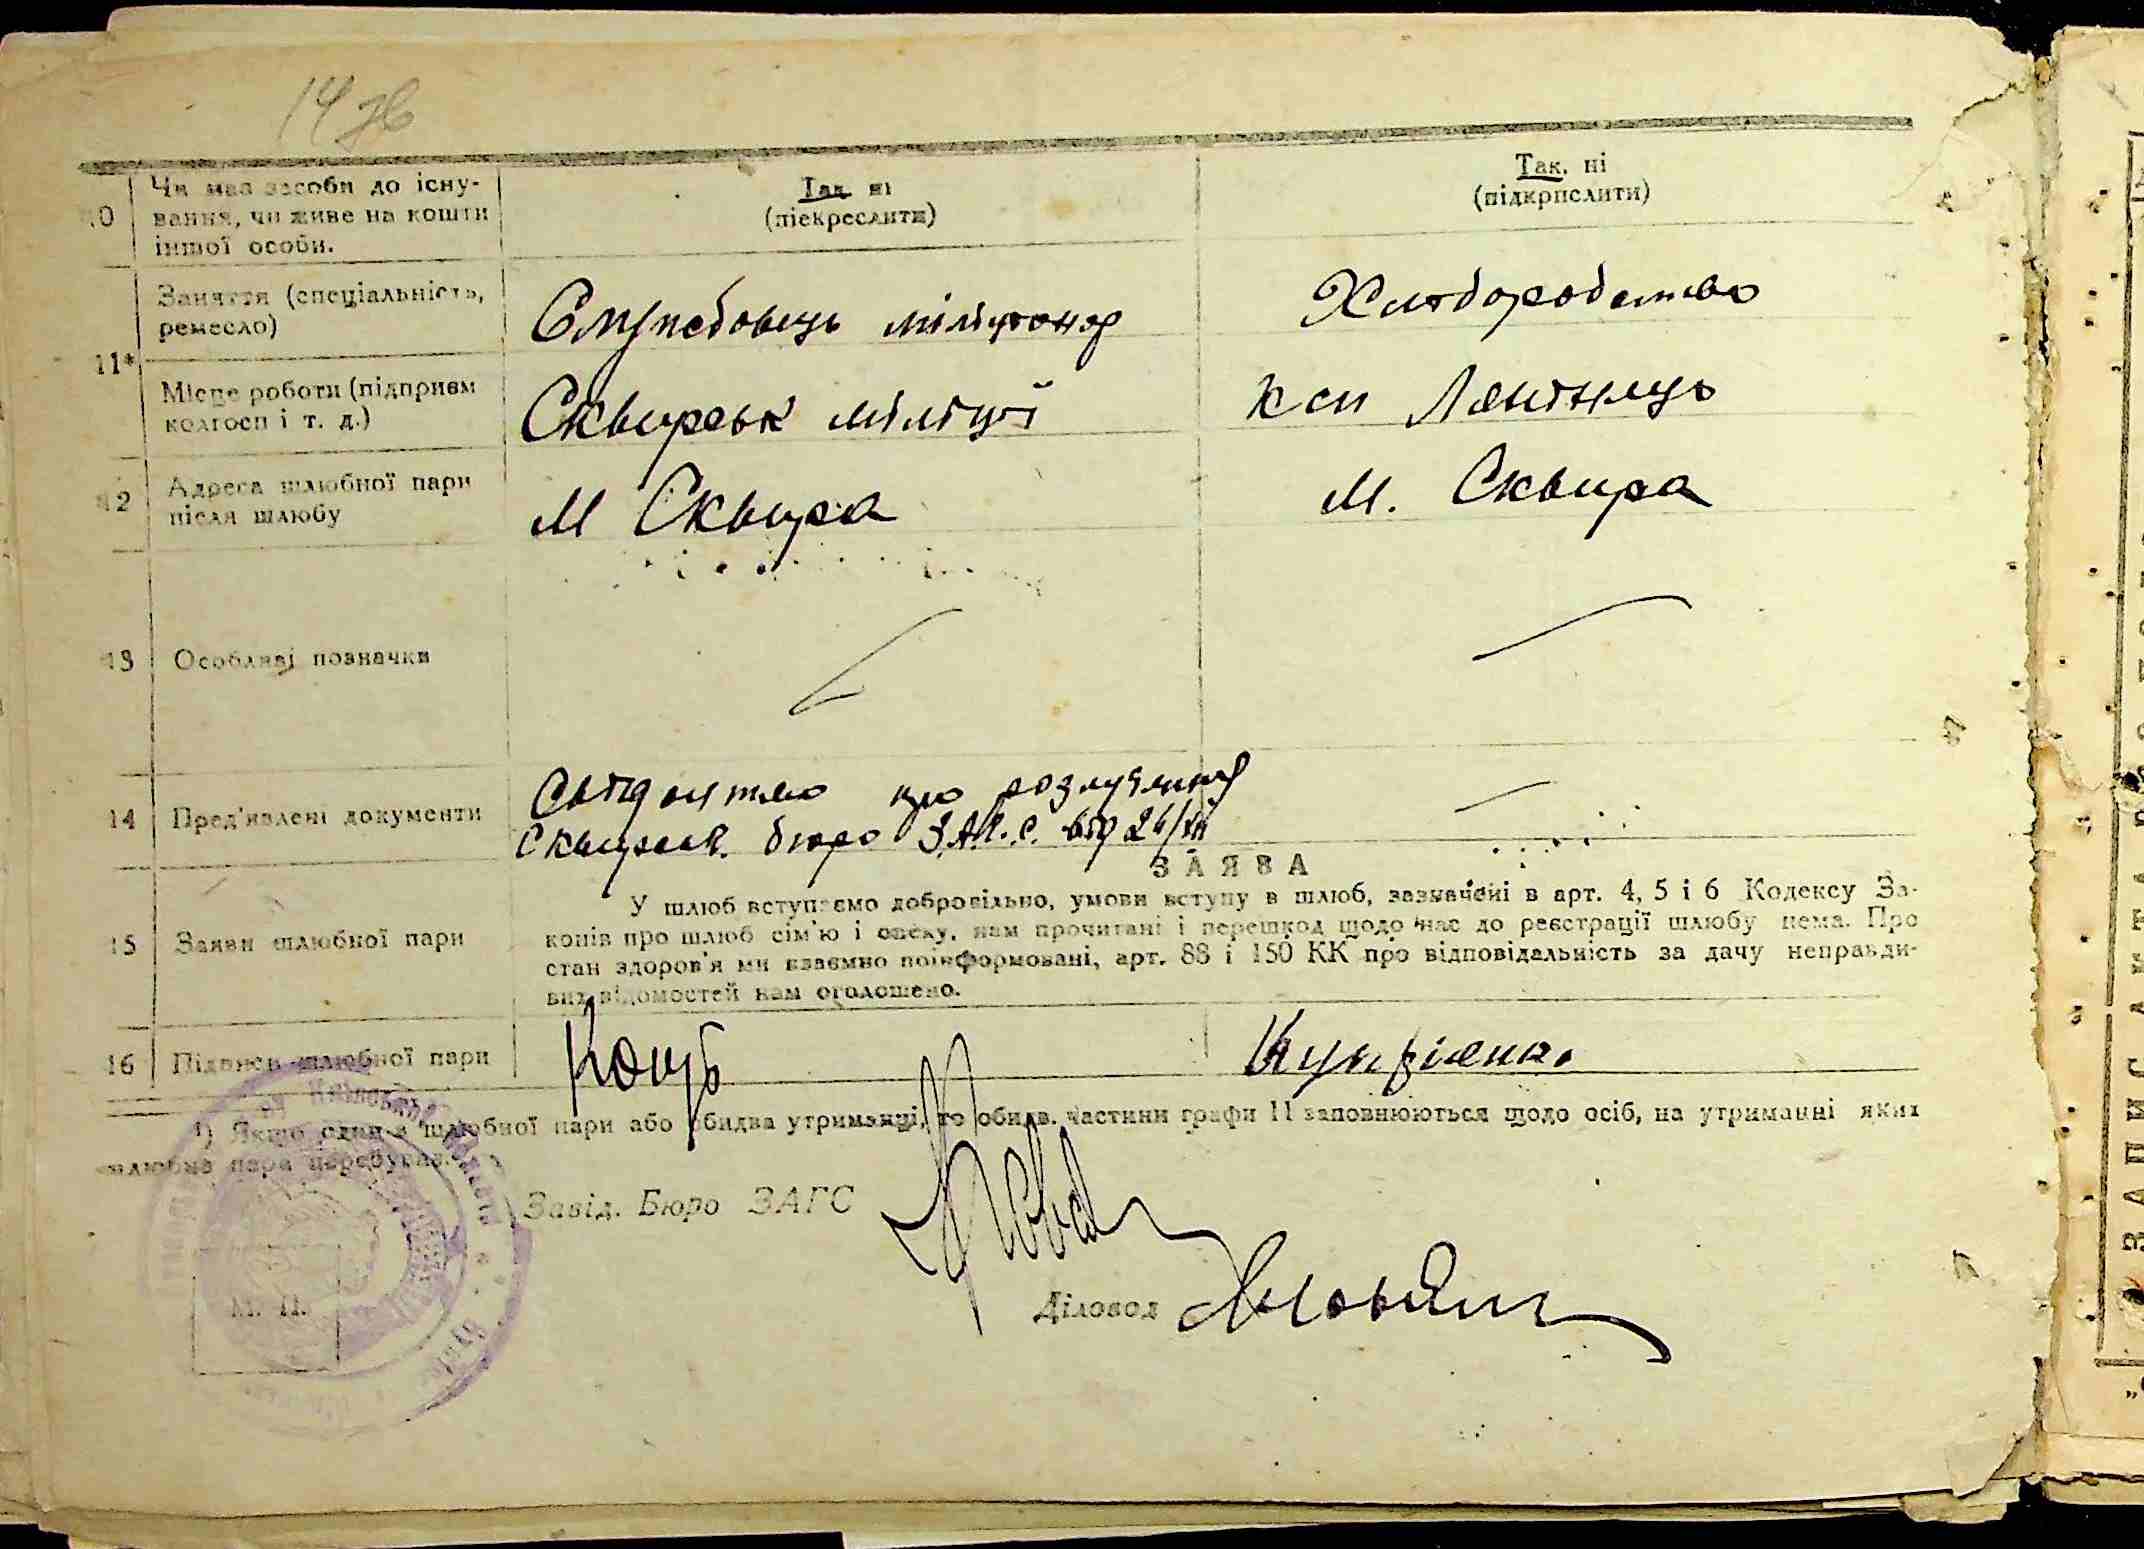 14 зв
10 Чи має засоби до існу-
вання, чи живе на кошти
іншої особи.
Так ні
(піекреслити)
Так, ні
(підкрислити)
11*
Заняття (спеціальність,
ремесло)
Службовець міліціонер
Хліборобство
Місце роботи (підприєм
колгосп і т. д.)
Сквирськ міліції
ксп
12 Адреса шлюбної пари
після шлюбу
М Сквира
М. Сквира
13 Особливі позначки
14 Пред'явлені документи
Свідоцтво про розлучення
Сквирськ. бюро З.А.Г.С. від 26/VII
ЗАЯВА
15 Заяви шлюбної пари
У шлюб вступаємо добровільно, умови вступу в шлюб, зазначені в арт. 4, 5 і 6 Кодексу За-
конів про шлюб сім'ю і опеку, нам прочитані і перешкод щодо нас до реєстрації шлюбу нема. Про
стан здоров'я ми взаємно поінформовані, арт. 88 і 150 КК про відповідальність за дачу неправди-
вих відомостей нам оголошено.
16 Підписи шлюбної пари
Коцуб
Купріянко
¹) Якщо один з шлюбної пари або обидва утриманці, то обидв. частини графи 11 заповнюються щодо осіб, на утриманні яких
шлюбна пара перебуває.
Завід. Бюро ЗАГС
М. П.
Діловод